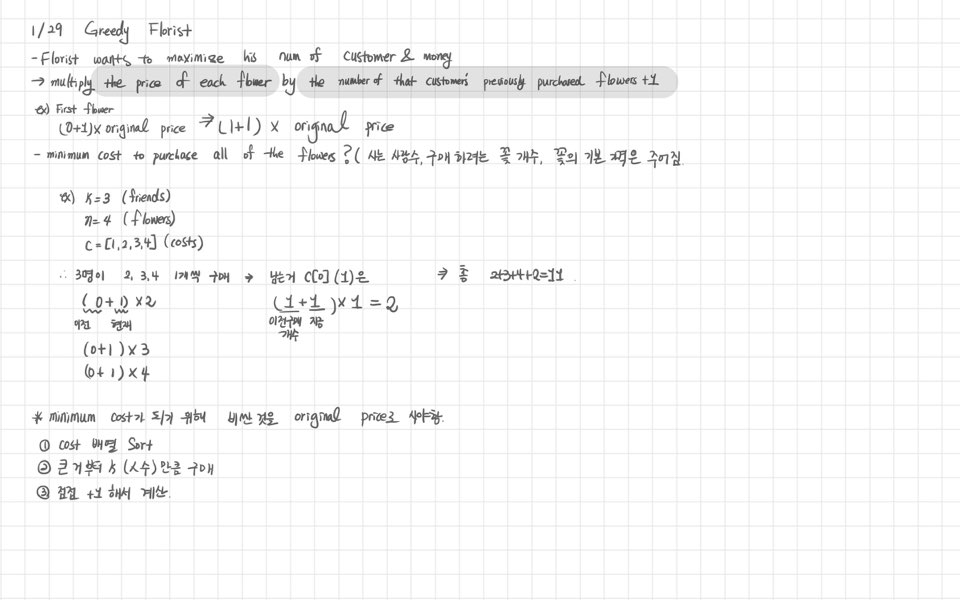 1/29 Greedy Florist
- Florist wants to maximize his num of customer & money
→ multiply the price of each flower by the number of that customer's previously purchased flowers +1
ex) First flower
(0+1)× original price ⇒ (1+1) × original price
- minimum cost to purchase all of the flowers? ( 사는 사람수, 구매 하려는 꽃 개수, 꽃의 기본 가격은 주어짐.
ex) k=3 (friends)
n=4 (flowers)
c=[1,2,3,4] (costs)
∴ 3명이 2, 3, 4 1개씩 구매 → 남는거 C[0] (1)은 ⇒ 총 2+3+4+2=11.
(0+1)×2 (1+1)×1=2
이전 현재 이전구매 지금
개수
(0+1)×3
(0+1)×4
* minimum cost가 되기 위해 비싼 것을 original price로 사야함.
① cost 배열 Sort
② 큰 거부터 k (人수)만큼 구매
③ 점점 +1 해서 계산.